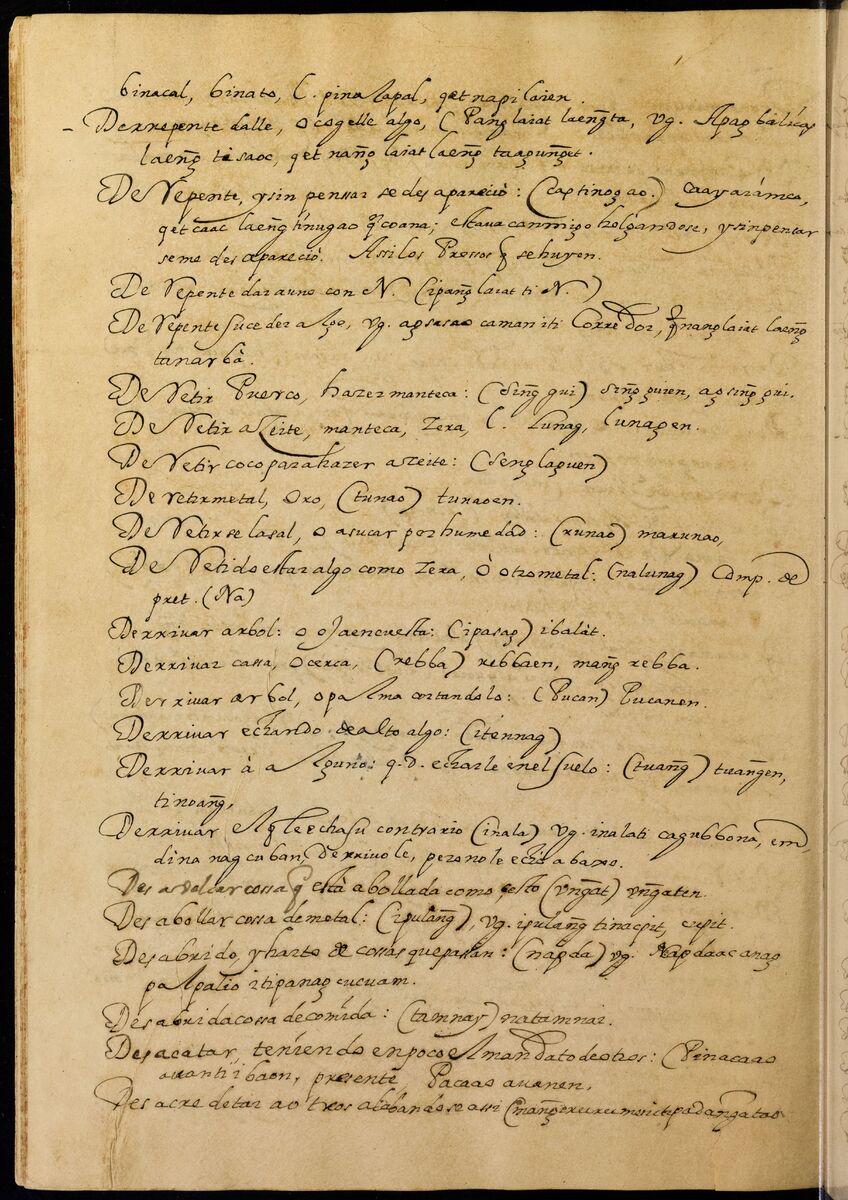 binacal, binato, l. pinaslapal, qet napilaien.
Derrepente dalle, o cogelle algo, (Pang̃laiat laeng̃ta, vg. Apag balicas
laeng̃ ti saoc, qet nang̃ laiat laeng̃ tagpung̃et.
De Repente, y sin pensar se desapareciò: (cas tinogao.) caayarámco,
qet caac laeng̃ tínugao q̃coana; estava conmigo holgandose, y sin pensar
se me desapareciò. Assi los Pressos q̃ se huyen.
De repente dar a uno con N. (ipang̃laiat ti N.)
De repente suceder algo, vg. agsasao caman iti Corredor, q̃ nang̃laiat laeng̃
tanarbà.
Derretir Puerco, hazer manteca: (Sing̃gui) sing̃guien, agsing̃gui.
Derretir azeite, manteca, zera, l. Lunag, lunagen.
Derretir coco para hazer azeite: (senglaguen)
Derretir metal, Oro, (tunao) tunaoen.
Derretirse la sal, o asucar por humedad: (runao) marunao,
Derretido estar algo como zera, ò otro metal: (nalunag) Comp. de
pret. (Na)
Derrivar arbol: o oja encuesta: (ipasag) ibalàt.
Derrivar cassa, o cerca, (rebba) rebbaen, mang̃rebba.
Derrivar arbol, o palma cortandolo: (Pucan) Pucanen.
Derrivar echando de alto algo: (iténnag)
Derrivar à alguno: q.d. echarle en el suelo: (tuang̃) tuang̃en,
tinoang̃,
Derrivar Al q̃ le echa su contrario (inala) vg. inalati cagubbona, em
dina nagcuban, derrivole, pero no le echò abaxo.
Desabollar cossa q̃ està abollada como cesto (vng̃at) vng̃aten.
Desabollar cossa de metal: (ipulang̃), vg. ipulang̃ tinacpit, cupit.
Desabrido, y harto de cossas que passan: (nápda) vg. Napdaac anag
palpalio itipanag cucuam.
Desabrida cossa de comida: (tamnay) natamnai.
Desacatar, teniendo en poco el mandato de otros: (Pinacaao
auanti ibaon, presente, Pacaao auanen.
Desacreditar a otros alabandose assi